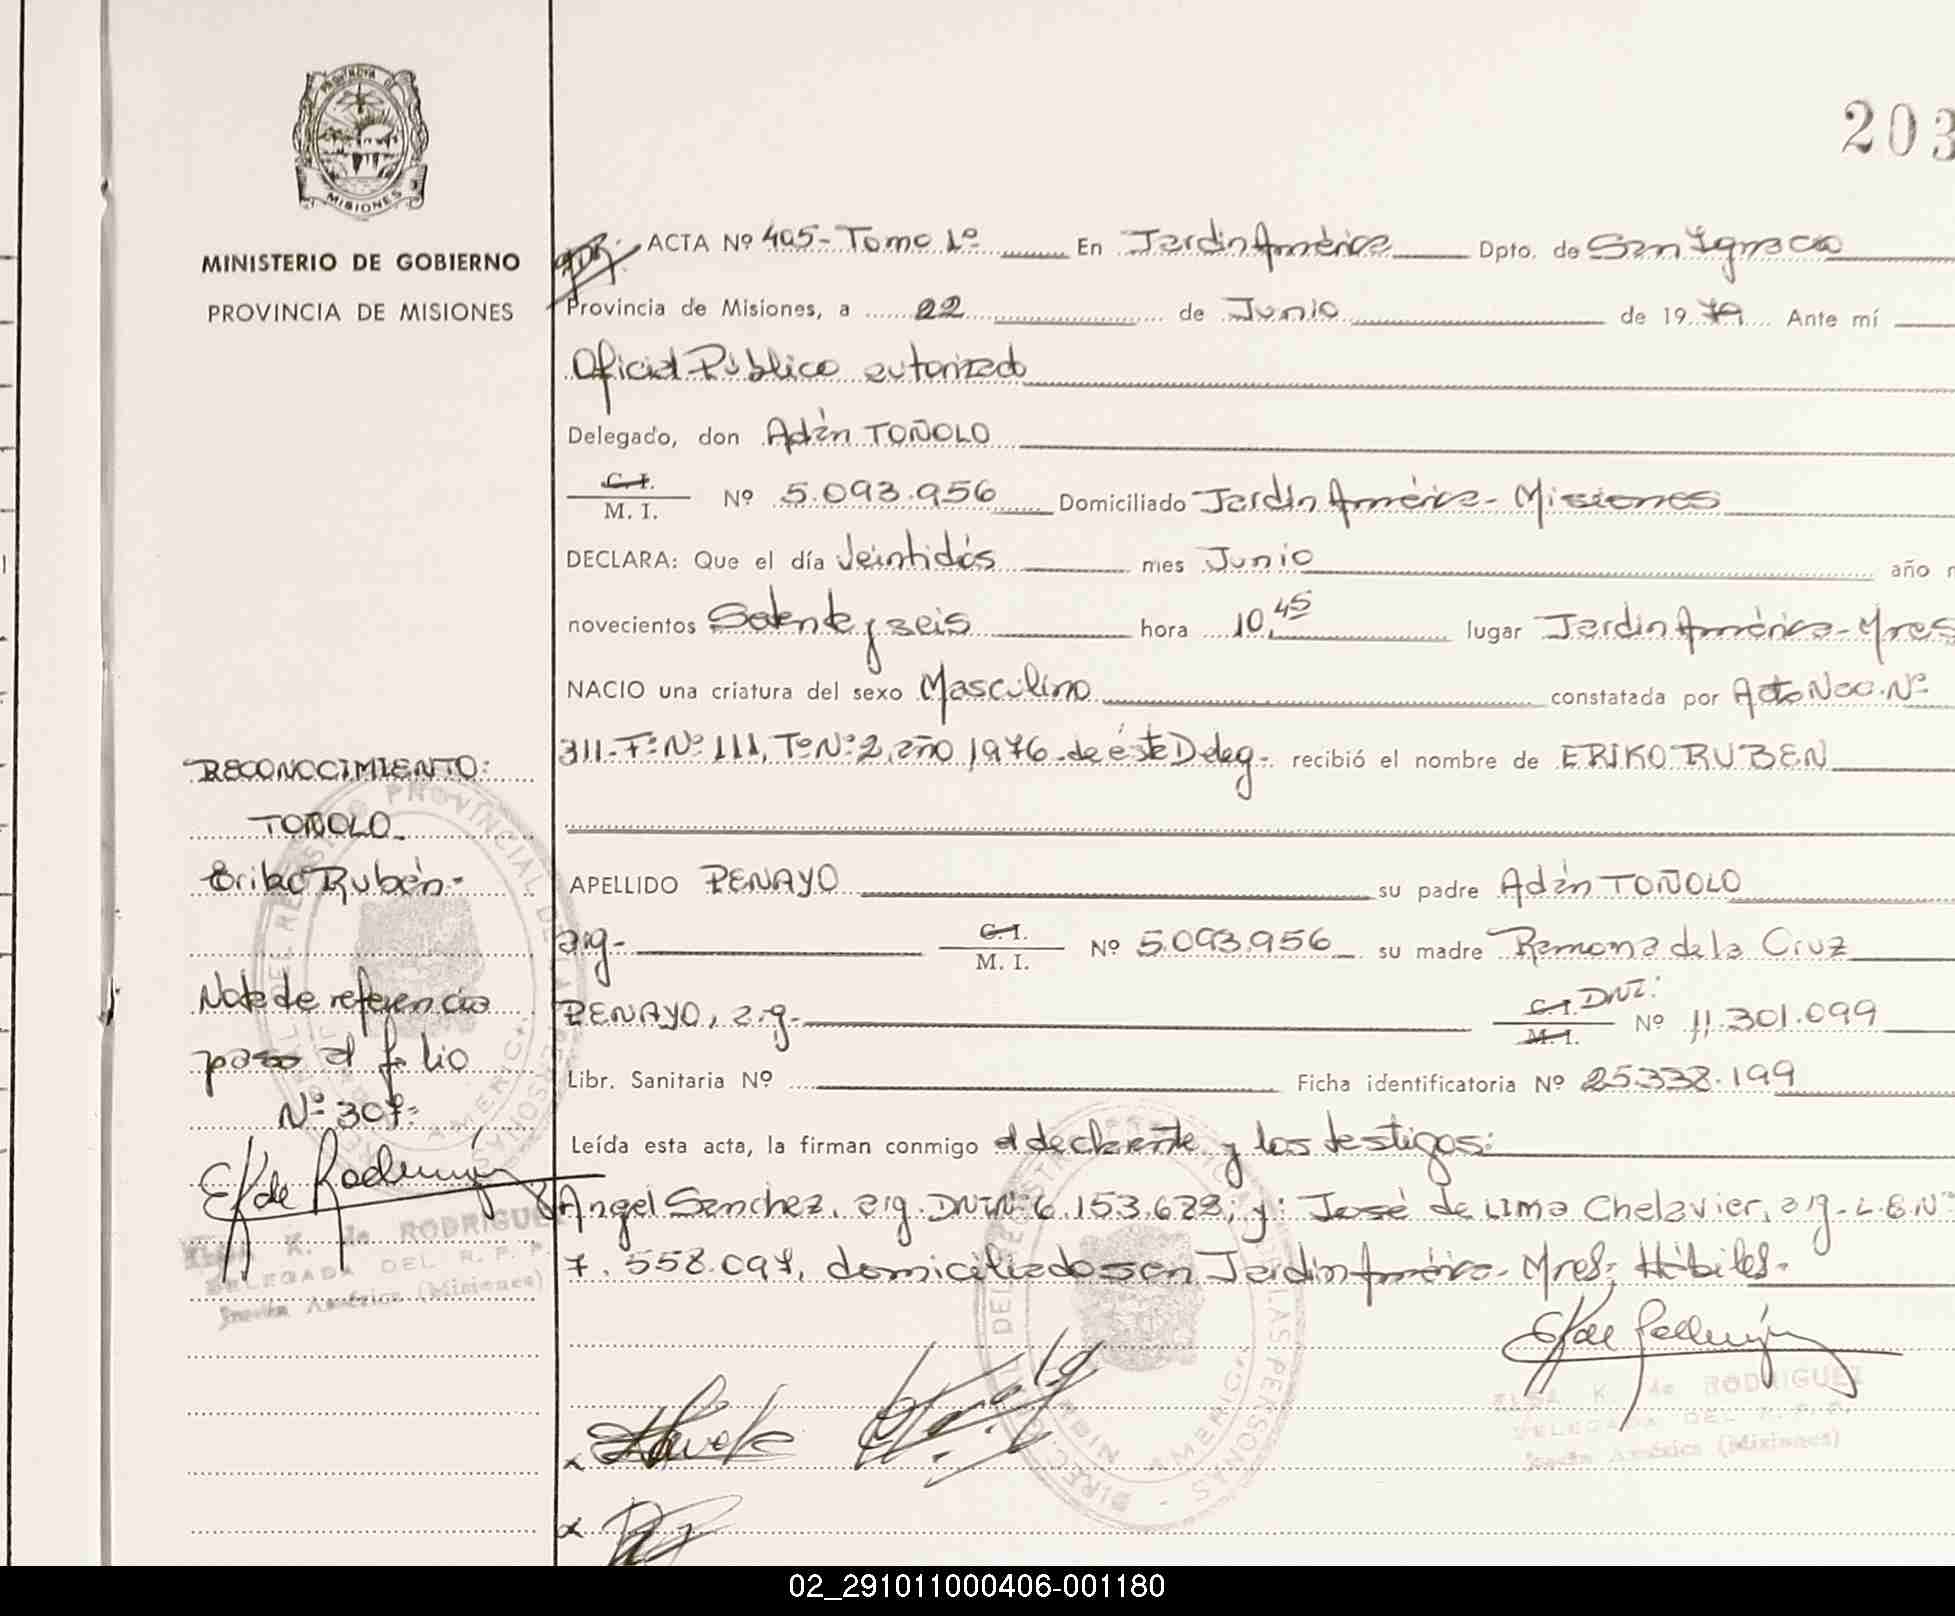 PROVINCIA DE
MISIONES
MINISTERIO DE GOBIERNO
PROVINCIA DE MISIONES
203
ACTA Nº 405- Tomo 1º En Jardín América Dpto. de San Ignacio
Provincia de Misiones, a 22 de Junio de 1979 Ante mí
Oficial Público autorizado
Delegado, don Adán TOÑOLO
C. I.
M. I. Nº 5.093.956 Domiciliado Jardín América - Misiones
DECLARA: Que el día Veintidós mes Junio año
novecientos Setenta y seis hora 10,45 lugar Jardín América - Mnes
NACIO una criatura del sexo Masculino constatada por Acta Nac. Nº
311- Fº Nº 111, Tº Nº 2, año 1976 - de éste Deleg - recibió el nombre de ERIKO RUBEN
APELLIDO PENAYO su padre Adán TOÑOLO
arg- C. I.
M. I. Nº 5.093.956 su madre Ramona de la Cruz
PENAYO, arg- C. I. DNI:
M. I. Nº 11.301.099
Libr. Sanitaria Nº Ficha identificatoria Nº 25.338.199
Leída esta acta, la firman conmigo el declarante y los testigos:
Angel Sánchez, arg. DNI Nº 6.153.628; y: José de Lima Chelavier, arg- L.E Nº
7.558.097, domiciliados en Jardín América - Mnes; Hábiles-
RECONOCIMIENTO:
TOÑOLO
Eriko Rubén-
Nota de referencia
paso al folio
Nº 307-
E K de Rodriguez
ELSA K. de RODRIGUEZ
DELEGADA DEL R. P. P.
Jardín América (Misiones)
E K de Rodriguez
ELSA K. de RODRIGUEZ
DELEGADA DEL R. P. P.
Jardín América (Misiones)
02_291011000406-001180